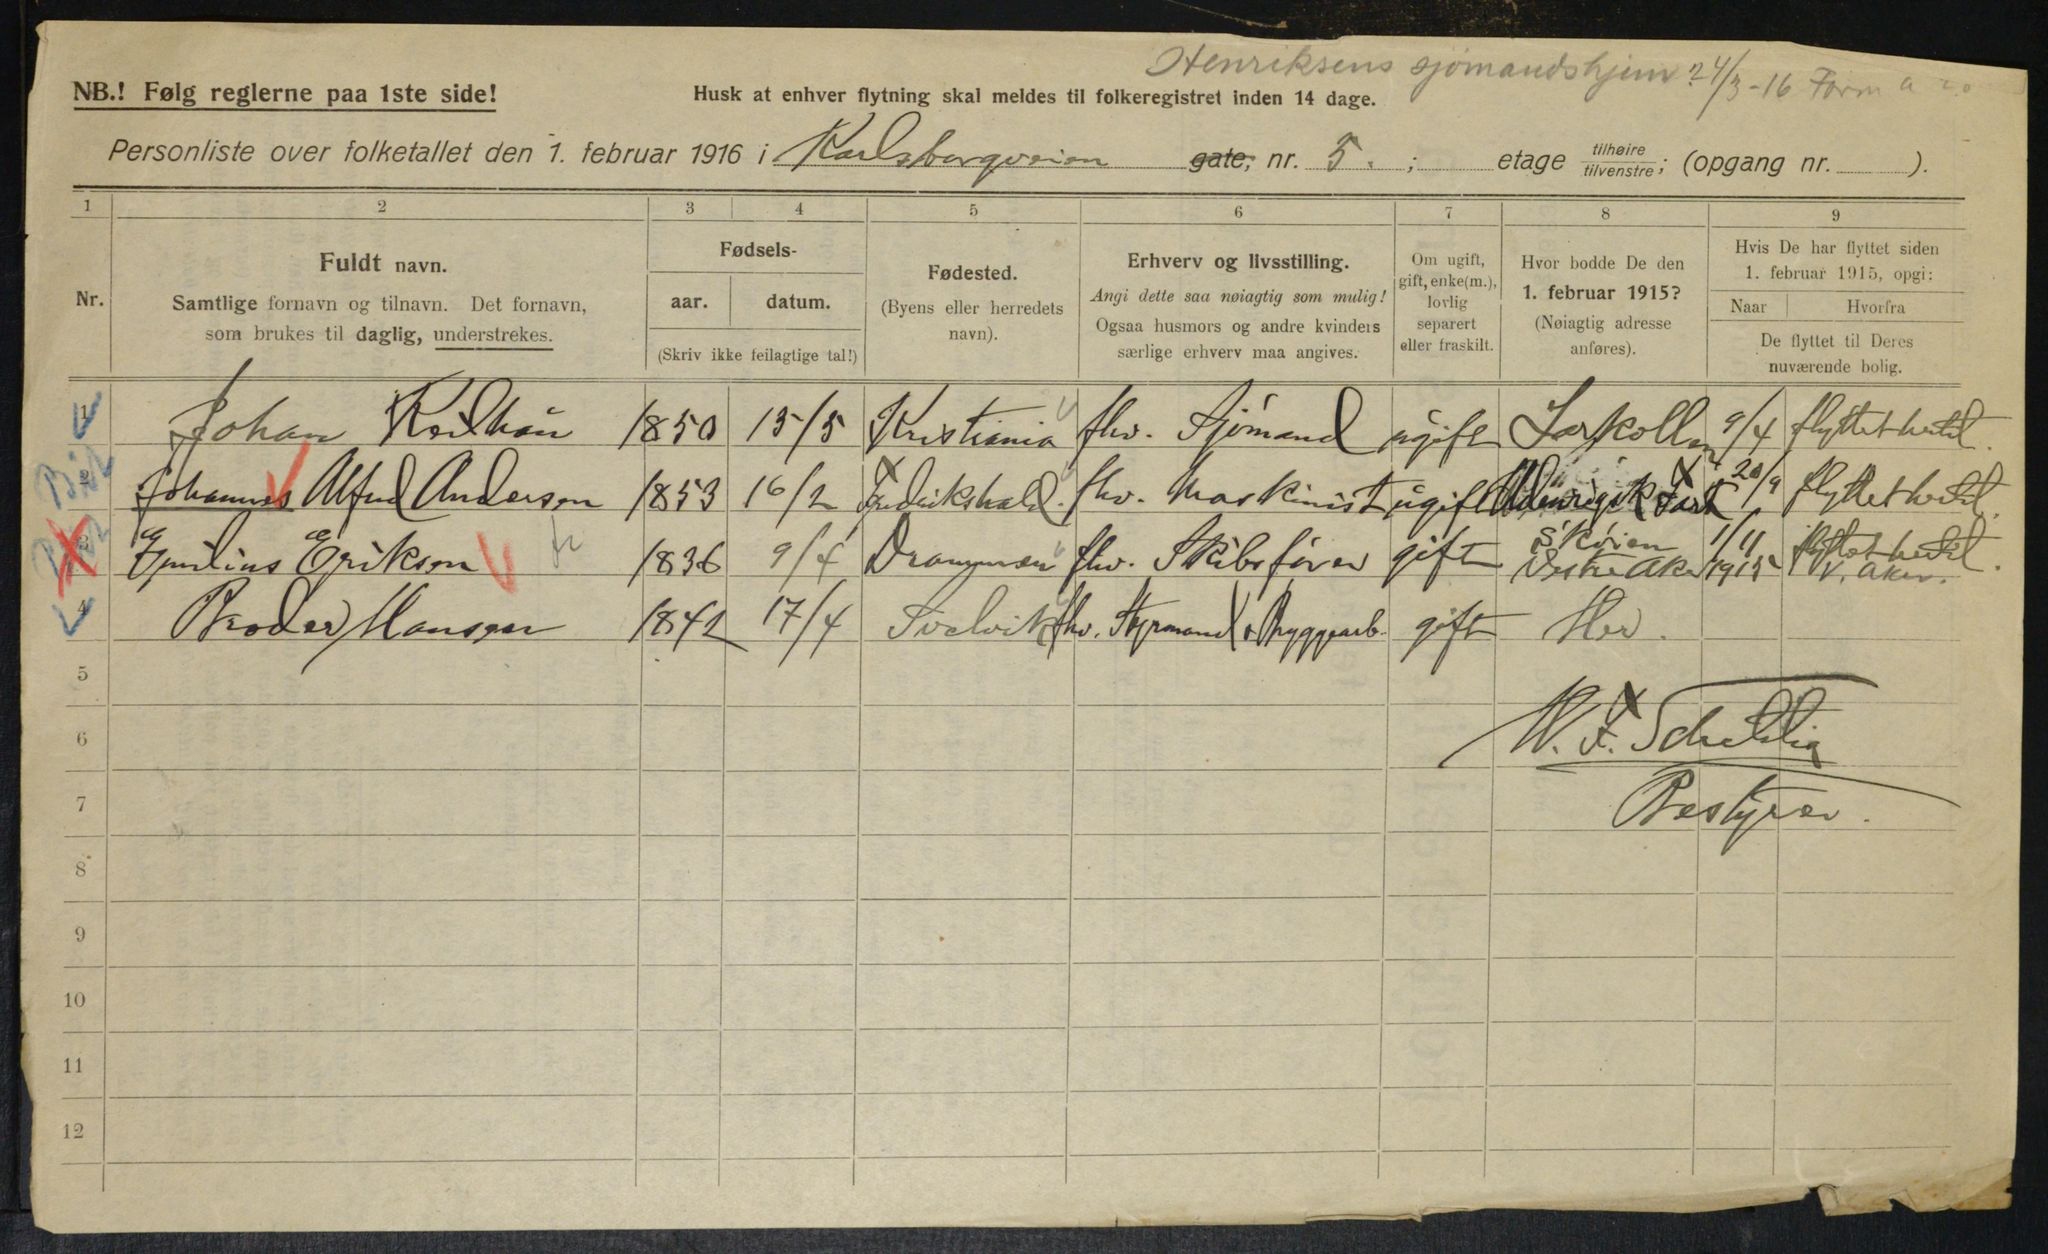 Henriksens sjømandshjem 24/3-16 Form a
NB.! Følg reglerne paa 1ste side!
Husk at enhver flytning skal meldes til folkeregistret inden 14 dage.
Personliste over folketallet den 1. februar 1916 i Karlsborgveien gate, nr. 5. ; etage tilhøire tilvenstre; (opgang nr. ).
1 2 3 4 5 6 7 8 9
Nr.
Fuldt navn.
Samtlige fornavn og tilnavn. Det fornavn,
som brukes til daglig, understrekes.
Fødsels-
aar. datum.
(Skriv ikke feilagtige tal!)
Fødested.
(Byens eller herredets
navn).
Erhverv og livsstilling.
Angi dette saa nøiagtig som mulig!
Ogsaa husmors og andre kvinders
særlige erhverv maa angives.
Om ugift,
gift, enke(m.),
lovlig
separert
eller fraskilt.
Hvor bodde De den
1. februar 1915?
(Nøiagtig adresse
anføres).
Hvis De har flyttet siden
1. februar 1915, opgi:
Naar Hvorfra
De flyttet til Deres
nuværende bolig.
1 Johan 1850 15/5 Kristiania fhv. Sjømand ugift Larkollen 9/4 flyttet hertil.
2 Johannes Alfred Anderson 1853 16/2 Fredrikshald. fhv. Maskinist ugift Udenrigsk Fart 20/9 flyttet hertil.
3 Emilius Erikson 1836 9/4 Drammen fhv. Skibsfører gift Skøien Vestre Aker 1/11 1915 flyttet hertil. V. Aker.
4 Broder Hansen 1842 17/4 Svelvik fhv. Styrmand & Bryggearb. gift Her.
5
6 W. F.
7 Bestyrer.
8
9
10
11
12